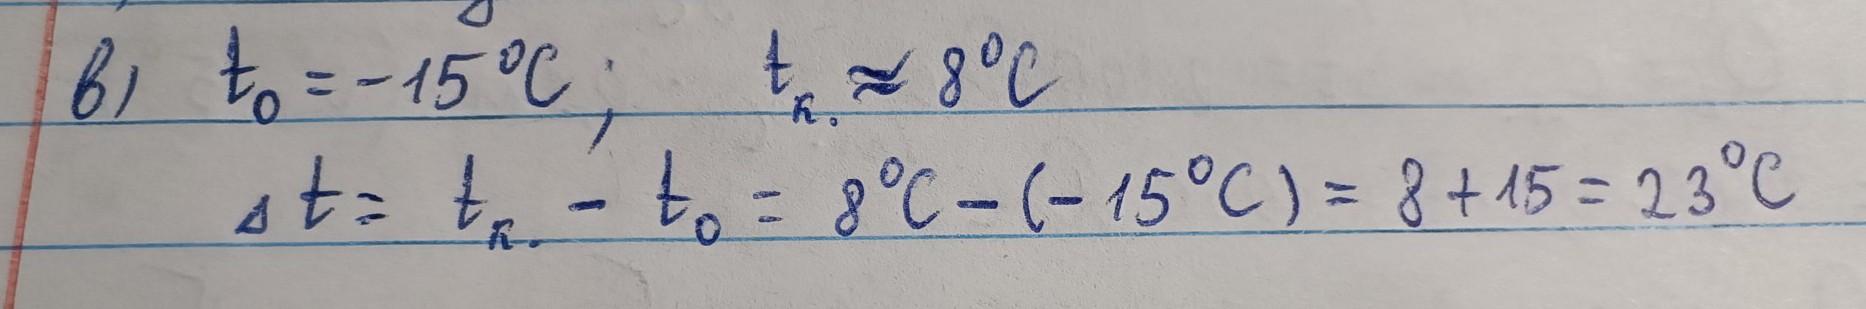 в) t₀ = -15°C; tк. ≈ 8°C
Δt = tк. - t₀ = 8°C - (-15°C) = 8 + 15 = 23°C